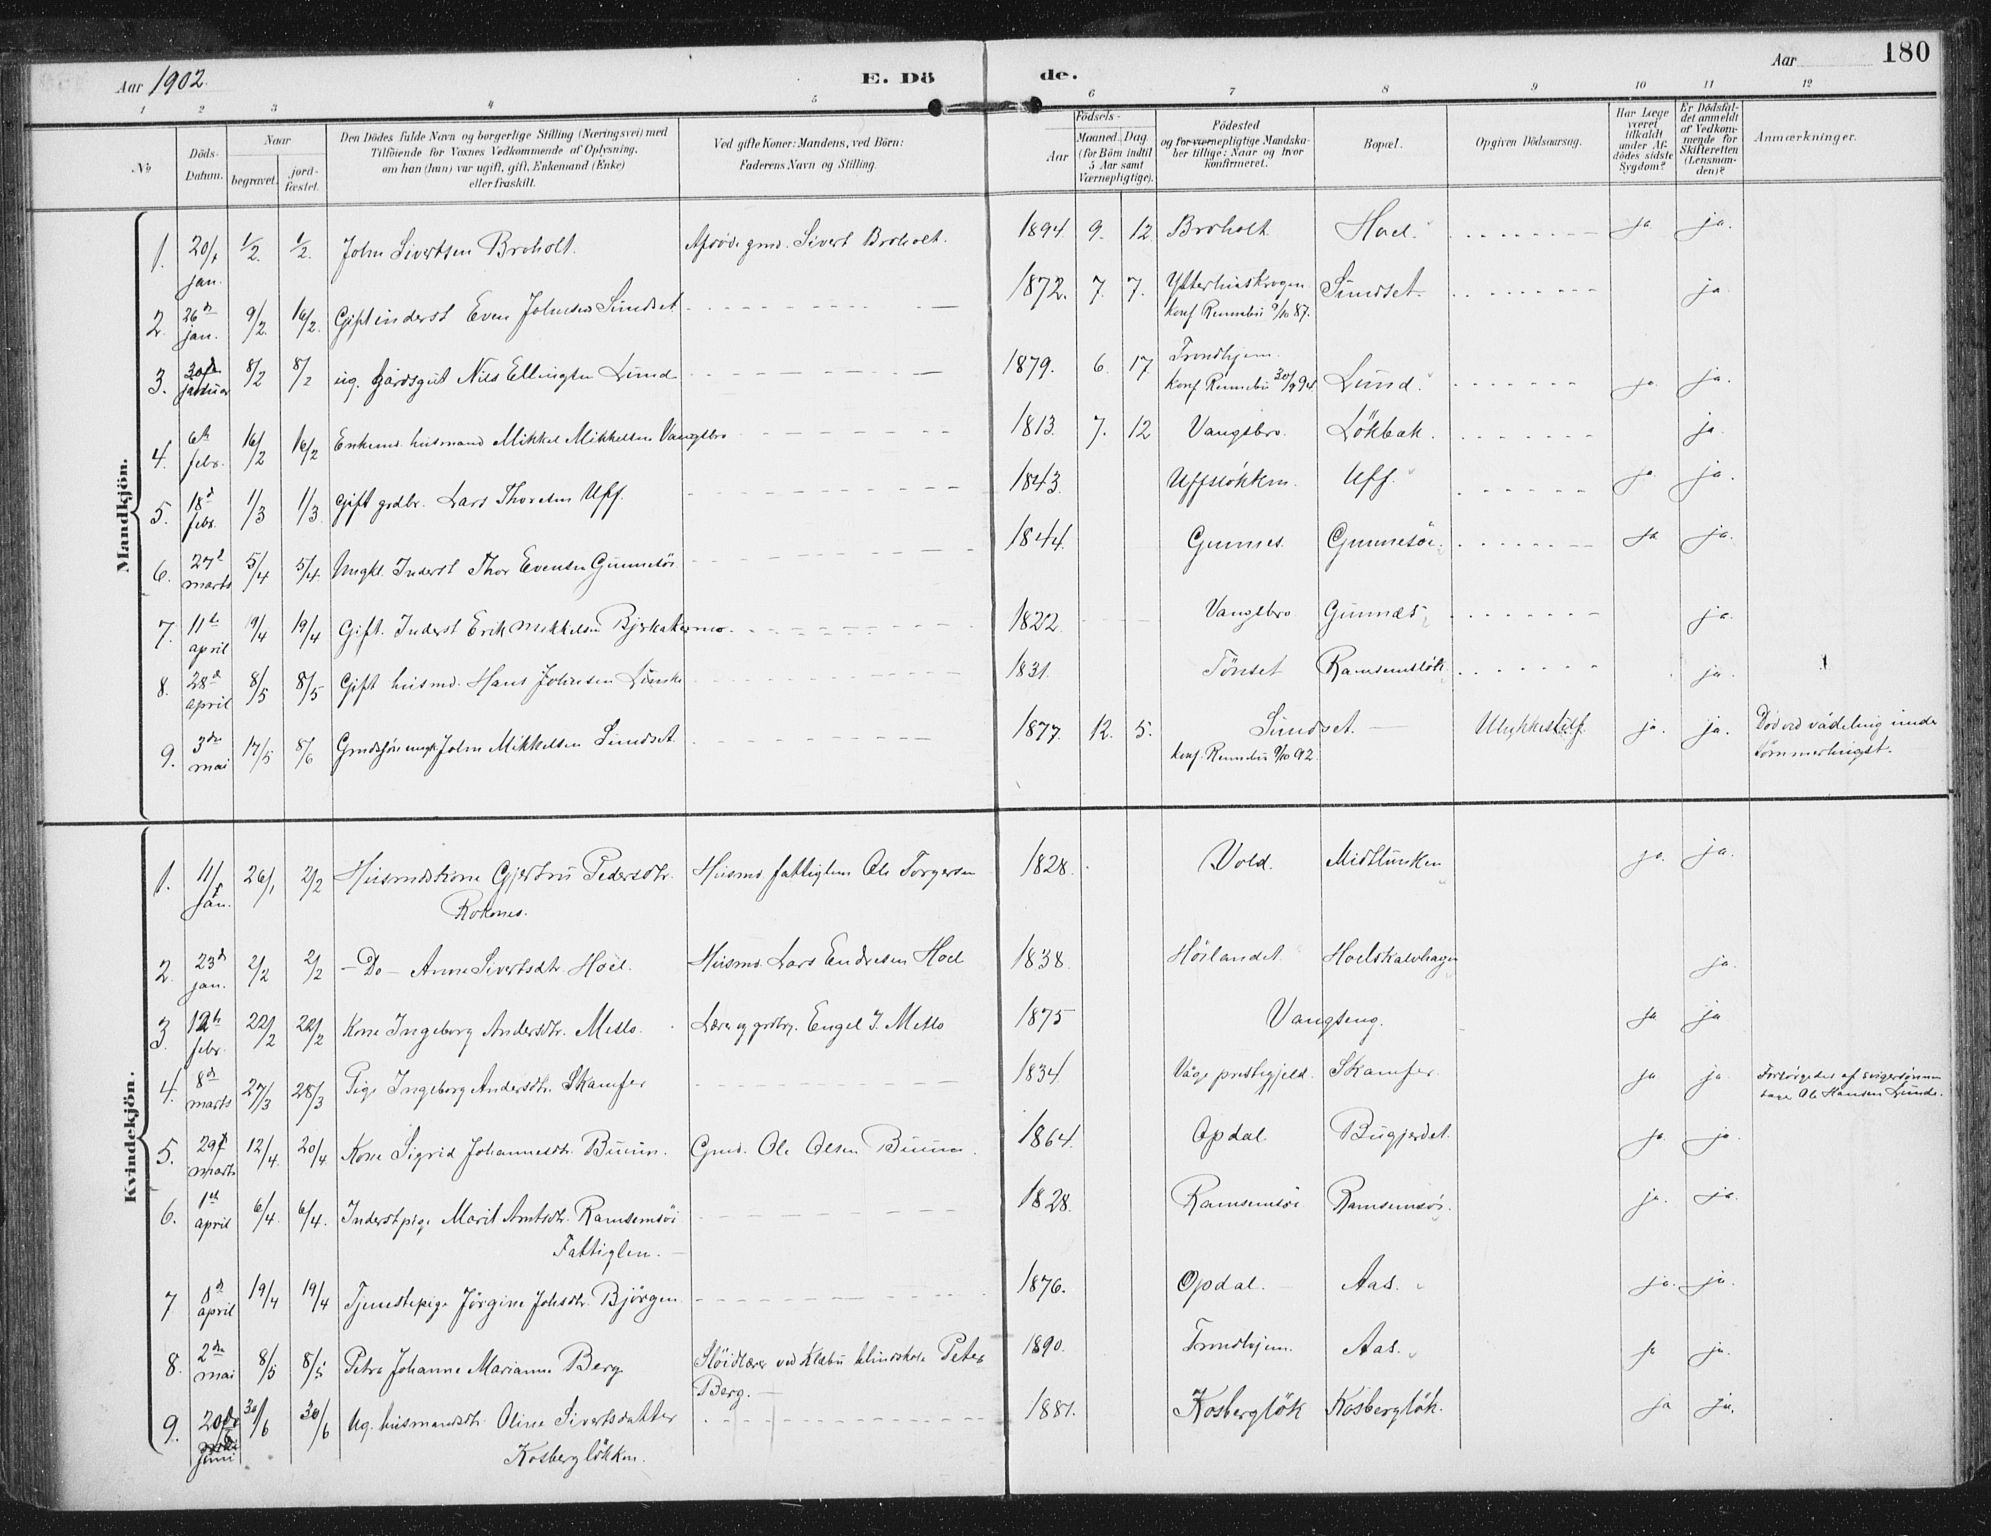 Aar 1902.
E. Dö
de.
Aar
180
1 2 3 4 5 6 7 8 9 10 11 12
No
Döds-Datum.
Naar
begravet.
jord-fæstet.
Den Dödes fulde Navn og borgerlige Stilling (Næringsvei) med
Tilföiende for Voxnes Vedkommende af Oplysning,
om han (hun) var ugift, gift, Enkemand (Enke)
eller fraskilt.
Ved gifte Koner: Mandens, ved Börn:
Faderens Navn og Stilling.
Födsels-
Aar
Maaned. Dag
(for Börn indtil
5 Aar samt
Værnepligtige).
Födested
og for værnepligtige Mandska-
ber tillige: Naar og hvor
konfirmeret.
Bopæl.
Opgiven Dödsaarsag.
Har Læge
været
tilkaldt
under Af-
dödes sidste
Sygdom?
Er Dödsfal-
det anmeldt
af Vedkom-
mende for
Skifteretten
(Lensman-
den)?
Anmærkninger.
Mandkjön.
1. 20/1 jan. 1/2 1/2. John Sivertsen Broholt. Afdöde gmd. Sivert Broholt. 1894 9. 12 Broholt Hoel. ja ja.
2. 26d jan. 9/2 16/2. Gift inderst Even Johnsen Sundset 1872. 7. 7. Sundset. ja
konf Rennebu 9/10 87.
3. januar 8/2 8/2 ug. Gårdsgut Nils Ellingsen Lund 1879. 6. 17 Trondhjem. Lund. ja ja.
konf Rennebu 30/9 94
4. 6te febr. 16/2 16/2 Enkemd. husmand Mikkel Mikkelsen Vangsbro 1813. 7. 12 Vangsbro. Lökbak. ja
5. 18d febr. 1/3 1/3 Gift grdbr. Lars Thoresen Uff. 1843. Uffslökken. Uff. ja ja.
6. 27d marts 5/4 5/4. Ungkl. Inderst Thor Evensen Gunnesöi 1844. Gunnes. Gunnesöi. ja ja.
7. 11te april 19/4 Gift. Inderst Erik Mikkelsen 1822. Vangsbro Gunnæs ja.
8. 28d april 8/5 8/5 Gift husmd. Hans Johnsen 1831. Tönset Ramsemslök. ja
9. 3die mai 17/5 8/6 ungk John Mikkelsen Sundset. 1877. 12. 5. Sundset. Ulykkestilf. ja. ja. Död ved vådeluig under
konf. Rennebu 9/10 92. tömmerhugst.
Kvindekjön.
1. 11/1 jan. 26/1 2/2 Husmdskone Gjertru Pedersdtr. Husmd fattiglem Ole Torgersen 1828. Vold. Midtlunken ja. ja.
Rokones.
2. 23d jan. 2/2 2/2 - Do - Anne Sivertsdtr. Hoel. Husmd. Lars Endresen Hoel 1838. Höilandet. Hoelskalvhagen ja.
3. 12te febr. 22/2 22/2 Kone Ingeborg Andersdtr. Mello. Lærer og grdbr. Engel J. Mello 1875 Vangseng. ja ja
4. 8d marts 27/3 28/3 Pige Ingeborg Andersdtr. Skamfer 1834. Våge prestegjeld. Skamfer. ja ja. Forsörgedes af svigersönnen
Ole Hansen Lunde.
5. 29d marts 12/4. 20/4 Kone Sigrid Johannesdtr. Buum. Gmd. Ole Olsen Buum 1864. Opdal. Bugjerdet. ja. ja.
6. 1ste april 6/4. 6/4. Inderstpige Marit Arntsdtr. Ramsemsöi 1828. Ramsemsöi Ramsemsöi. ja. ja.
Fattiglem. —
7 8d april 19/4 19/4 Tjenestepige Jörgine Johsdtr. Björgen 1876. Opdal. Aas. ja. ja.
8. 2den mai 8/5 8/5 Petra Johanne Marianne Berg Slöidlærer ved Klæbu blindskole Peter 1890. Trondhjem. Aas. ja ja.
Berg. —
9. 20de juni 30/6 30/6 Ug. husmandsdtr. Oline Sivertsdatter 1881. Kosberglök Kosberglök. ja ja.
Kosberglökken.